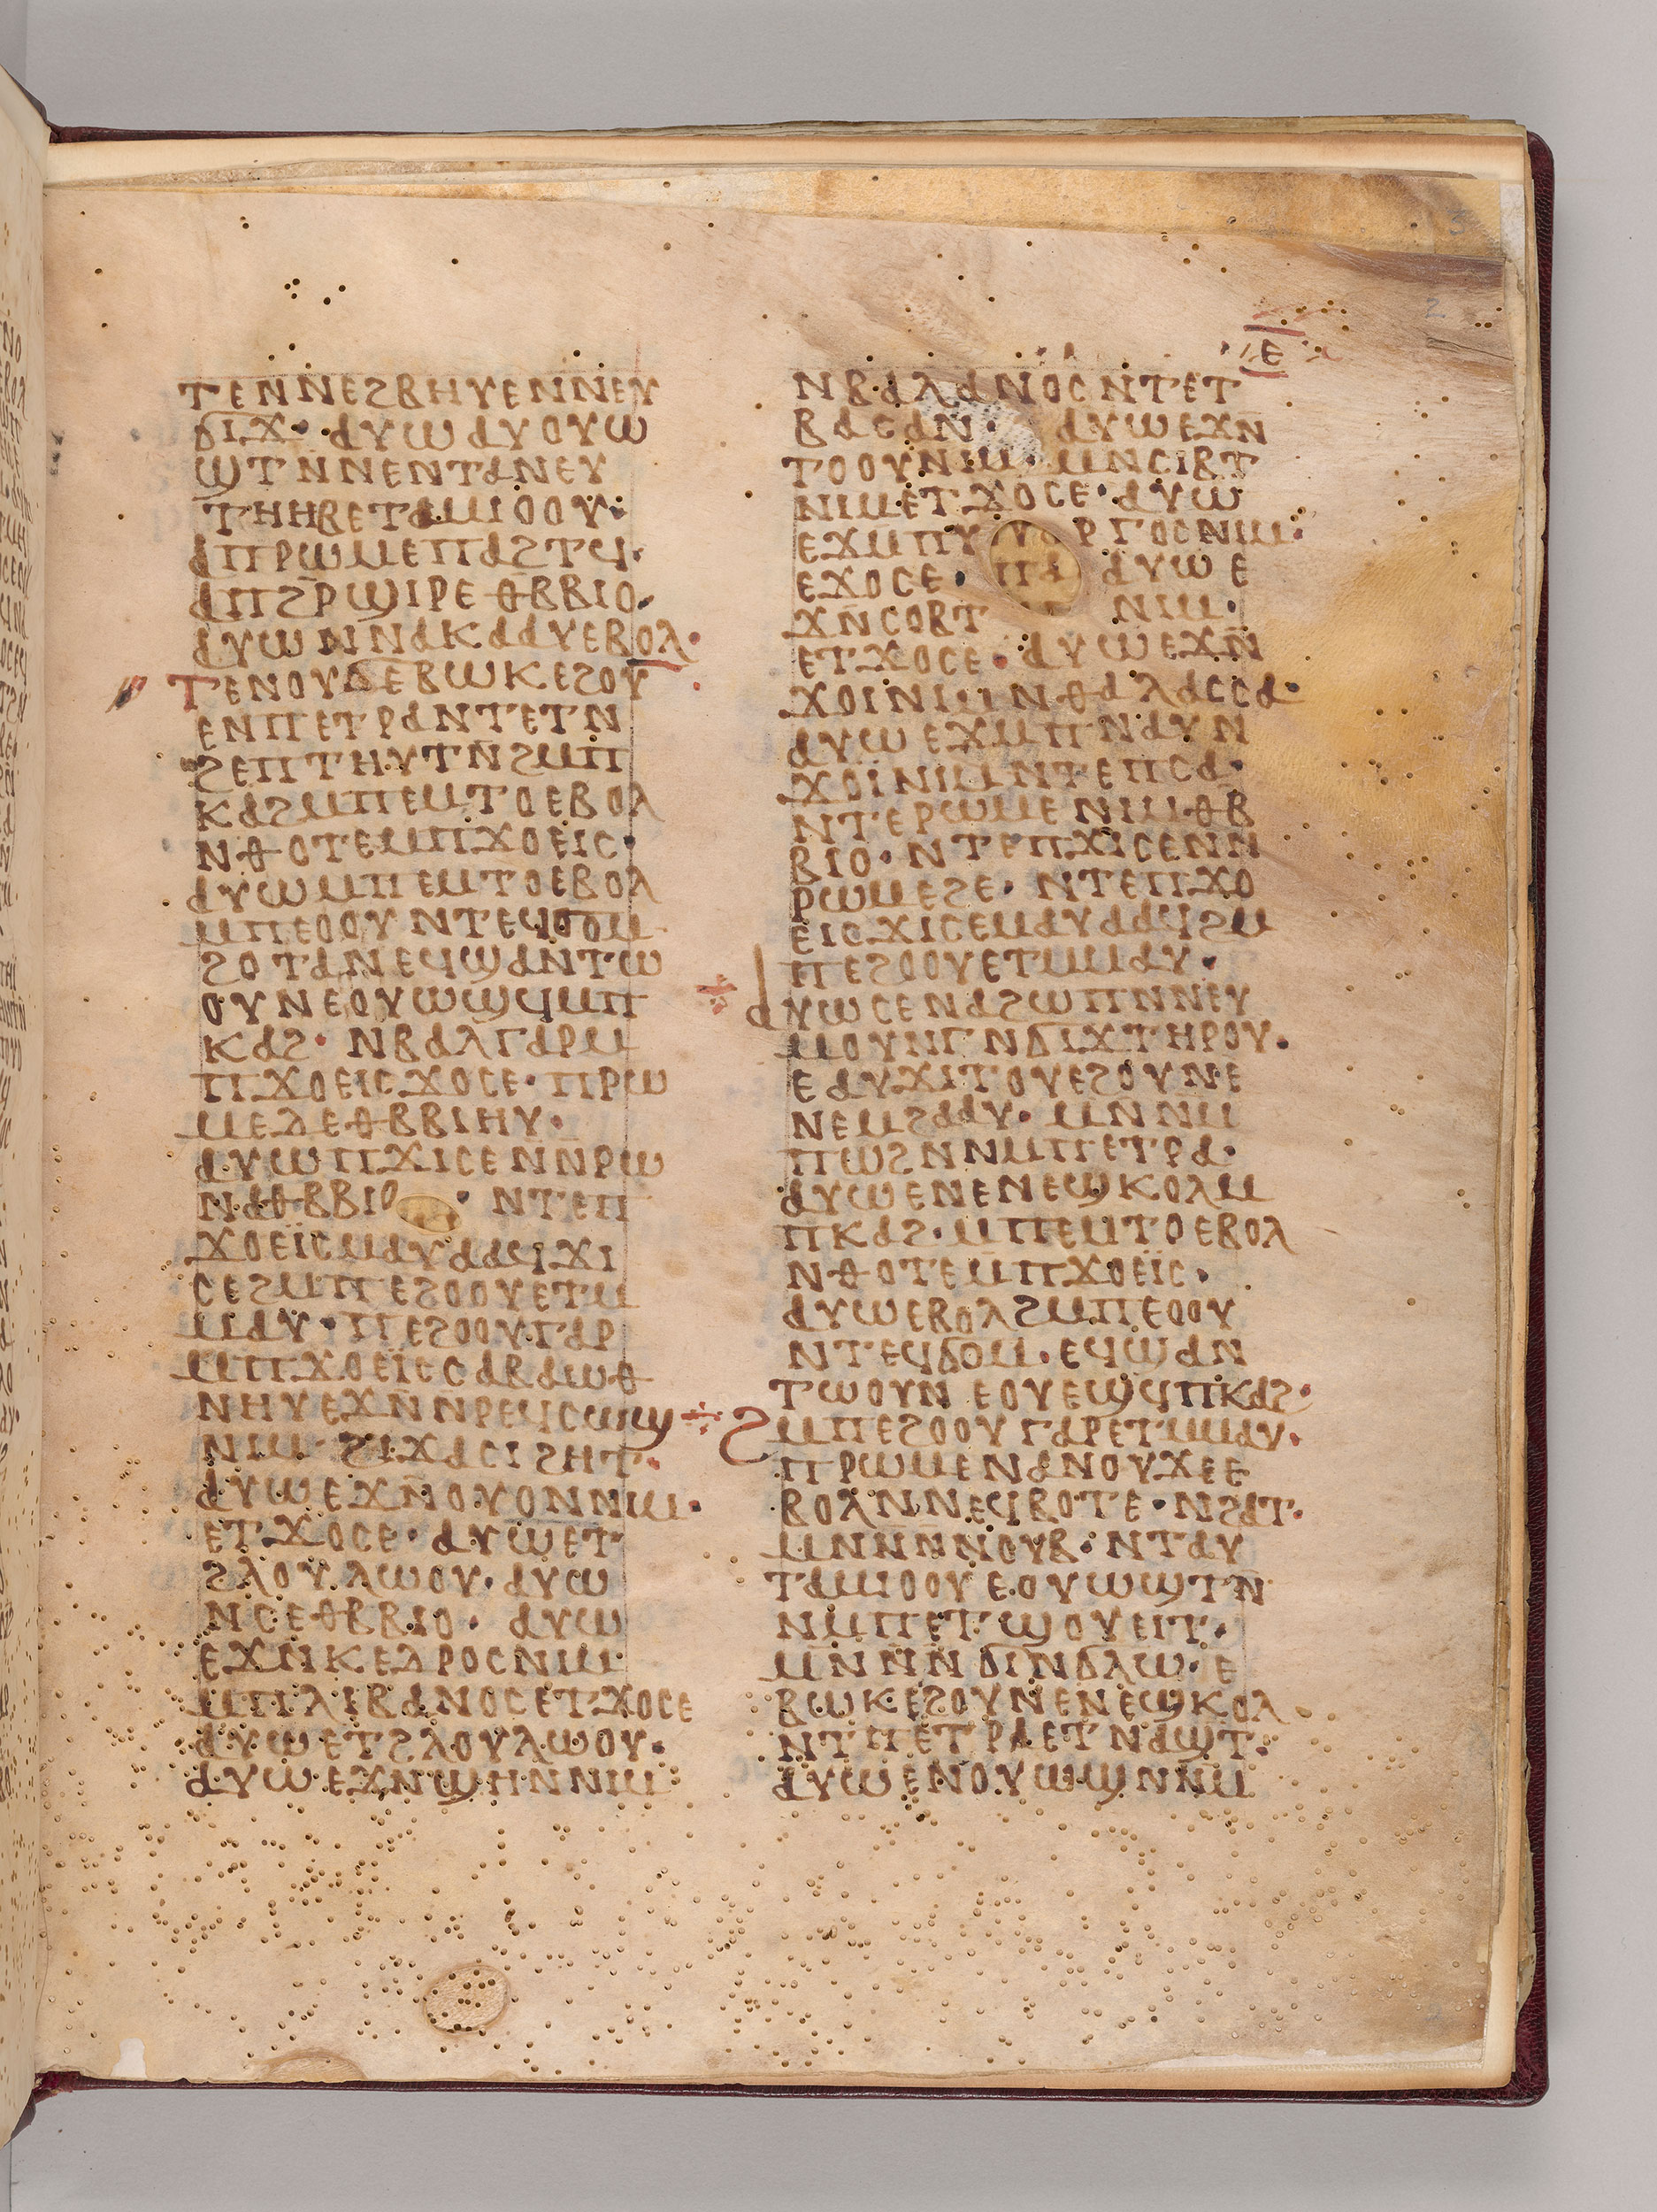 ⲧⲉⲛⲛⲉϩⲃⲏⲩⲉⲛⲛⲉⲩ
ϭⲓϫ· ⲁⲩⲱⲁⲩⲟⲩⲱ
ϣⲧⲛ̄ⲛⲉⲛⲧⲁⲛⲉⲩ
ⲧⲏⲏⲃⲉⲧⲁⲙⲓⲟⲟⲩ·
ⲁⲡⲣⲱⲙⲉⲡⲁϩⲧϥ·
ⲁⲡϩⲣ̄ϣⲓⲣⲉⲑⲃ̄ⲃⲓⲟ·
ⲁⲩⲱⲛⲛⲁⲕⲁⲁⲩⲉⲃⲟⲗ·
ⲧⲉⲛⲟⲩϭⲉⲃⲱⲕⲉϩⲟⲩ
ⲉⲛⲡⲉⲧⲣⲁⲛⲧⲉⲧⲛ̄
ϩⲉⲡⲧⲏⲩⲧⲛ̄ϩⲙ̄ⲡ
ⲕⲁϩⲙ̄ⲡⲉⲙⲧⲟⲉⲃⲟⲗ
ⲛⲑⲟⲧⲉⲙⲡϫⲟⲉⲓⲥ·
ⲁⲩⲱⲙ̄ⲡⲉⲙⲧⲟⲉⲃⲟⲗ
ⲙⲡⲉⲟⲟⲩⲛⲧⲉϥϭⲟⲙ
ϩⲟⲧⲁⲛⲉϥϣⲁⲛⲧⲱ
ⲟⲩⲛⲉⲟⲩⲱϣϥⲙⲡ
ⲕⲁϩ· ⲛⲃⲁⲗⲅⲁⲣⲙ
ⲡϫⲟⲉⲓⲥϫⲟⲥⲉ· ⲡⲣⲱ
ⲙⲉⲇⲉⲑⲃⲃⲓⲏⲩ·
ⲁⲩⲱⲡϫⲓⲥⲉⲛⲛ̄ⲣⲱ
ⲛⲁⲑⲃⲃⲓⲟ · ⲛⲧⲉⲡ
ϫⲟⲉⲓ̈ⲥⲙⲁⲩⲁⲁϥϫⲓ
ⲥⲉϩⲙ̄ⲡⲉϩⲟⲟⲩⲉⲧⲙ
ⲙⲁⲩ· ⲡⲉϩⲟⲟⲩⲅⲁⲣ
ⲙⲡϫⲟⲉⲓ̈ⲥⲥⲁⲃⲁⲱⲑ
ⲛⲏⲩⲉϫⲛ̄ⲛ̄ⲣⲉϥⲥⲱϣ
ⲛⲓⲙ· ϩⲓϫⲁⲥⲓϩⲏⲧ·
ⲁⲩⲱⲉϫⲛ̄ⲟⲩⲟⲛⲛⲓⲙ·
ⲉⲧϫⲟⲥⲉ· ⲁⲩⲱⲉⲧ
ϩⲗⲟⲩⲗⲱⲟⲩ· ⲁⲩⲱ
ⲛⲥⲉⲑⲃⲃⲓⲟ· ⲁⲩⲱ
ⲉϫⲛ̄ⲕⲉⲇⲣⲟⲥⲛⲓⲙ
ⲙⲡⲗⲓⲃⲁⲛⲟⲥⲉⲧϫⲟⲥⲉ
ⲁⲩⲱⲉⲧϩⲗⲟⲩⲗⲱⲟⲩ·
ⲁⲩⲱⲉϫⲛϣⲏⲛⲛⲓⲙ
ⲉ
ⲛⲃⲁⲗⲁⲛⲟⲥⲛ̄ⲧⲉⲧ
ⲃⲁⲥⲁⲛ· ⲁⲩⲱⲉϫⲛ̄
ⲧⲟⲟⲩⲛⲓⲙ· ⲙⲛⲥⲓⲃⲧ
ⲛⲓⲙⲉⲧϫⲟⲥⲉ· ⲁⲩⲱ
ⲉϫⲙ̄ⲡⲩ ⲣⲅⲟⲥⲛⲓⲙ·
ⲉϫⲟⲥⲉ· ⲁⲩⲱⲉ
ϫⲛ̄ⲥⲟⲃⲧ ⲛⲓⲙ·
ⲉⲧϫⲟⲥⲉ· ⲁⲩⲱⲉϫⲛ̄
ϫⲟⲓⲛⲓⲙⲛⲑⲁⲗⲁⲥⲥⲁ·
ⲁⲩⲱⲉϫⲙⲡⲛⲁⲩⲛ
ϫⲟⲓ̈ⲛⲓⲙⲛⲧⲉⲡⲥⲁ·
ⲛⲧⲉⲣⲱⲙⲉⲛⲓⲙⲑⲃ̄
ⲃⲓⲟ· ⲛⲧⲉⲡϫⲓⲥⲉⲛⲛ
ⲣⲱⲙⲉϩⲉ· ⲛⲧⲉⲡϫⲟ
ⲉⲓⲥϫⲓⲥⲉⲙⲁⲩⲁⲁϥϩⲙ
ⲡⲉϩⲟⲟⲩⲉⲧⲙⲙⲁⲩ·
ⲁⲩⲱⲥⲉⲛⲁϩⲱⲡⲛⲛⲉⲩ
ⲙⲟⲩⲛⲅⲛϭⲓϫⲧⲏⲣⲟⲩ·
ⲉⲁⲩϫⲓⲧⲟⲩⲉϩⲟⲩⲛⲉ
ⲛⲉⲙϩⲁⲁⲩ· ⲙⲛ̄ⲛⲙ
ⲡⲱϩⲛⲛⲙⲡⲉⲧⲣⲁ·
ⲁⲩⲱⲉⲛⲉⲛⲉϣⲕⲟⲗⲙ
ⲡⲕⲁϩ· ⲙⲡⲉⲙⲧⲟⲉⲃⲟⲗ
ⲛⲑⲟⲧⲉⲙ̄ⲡϫⲟⲉⲓ̈ⲥ·
ⲁⲩⲱⲉⲃⲟⲗϩⲙⲡⲉⲟⲟⲩ
ⲛⲧⲉϥϭⲟⲙ· ⲉϥϣⲁⲛ
ⲧⲱⲟⲩⲛ ⲉⲟⲩⲉϣϥⲡⲕⲁϩ·
ϩⲙⲡⲉϩⲟⲟⲩⲅⲁⲣⲉⲧⲙⲙⲁⲩ·
ⲡⲣⲱⲙⲉⲛⲁⲛⲟⲩϫⲉⲉ
ⲃⲟⲗⲛ̄ⲛⲉϥⲃⲟⲧⲉ· ⲛϩⲁⲧ·
ⲙⲛ̄ⲛ̄ⲛⲟⲩⲃ· ⲛⲧⲁⲩ
ⲧⲁⲙⲓⲟⲟⲩⲉⲟⲩⲱϣⲧⲛ̄
ⲛⲙⲡⲉⲧϣⲟⲩⲉⲓⲧ·
ⲙⲛ̄ⲛ̄ϭⲓⲛϭⲗⲱ· ⲉ
ⲃⲱⲕⲉϩⲟⲩⲛⲉⲛⲉϣⲕⲟⲗ
ⲛⲧⲡⲉⲧⲣⲁⲉⲧⲛⲁϣⲧ·
ⲁⲩⲱⲉⲛⲟⲩⲱϣⲛⲛⲙ